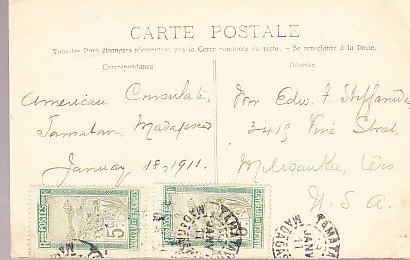 CARTE POSTALE
Tous les Pays étrangers n'acceptent pas la Correspondance au recto. - Se renseigner à la Poste.
Correspondance
Adresse
American Consulate,
Tamatave, Madagascar
January 18, 1911.
Mr Edw. F.
3419 Vine Street,
Milwaukee, Wis
U.S.A.
POSTES
5c
TAMATAVE
JANV
11
MADAGASCAR